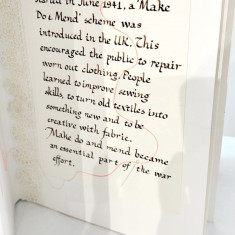 started in June 1941, a 'Make
Do & Mend' scheme was
introduced in the U.K. This
encouraged the public to repair
worn out clothing. People
learned to improve sewing
skills, to turn old textiles into
something new and to be
creative with fabric.
Make do and mend became
an essential part of the war
effort.